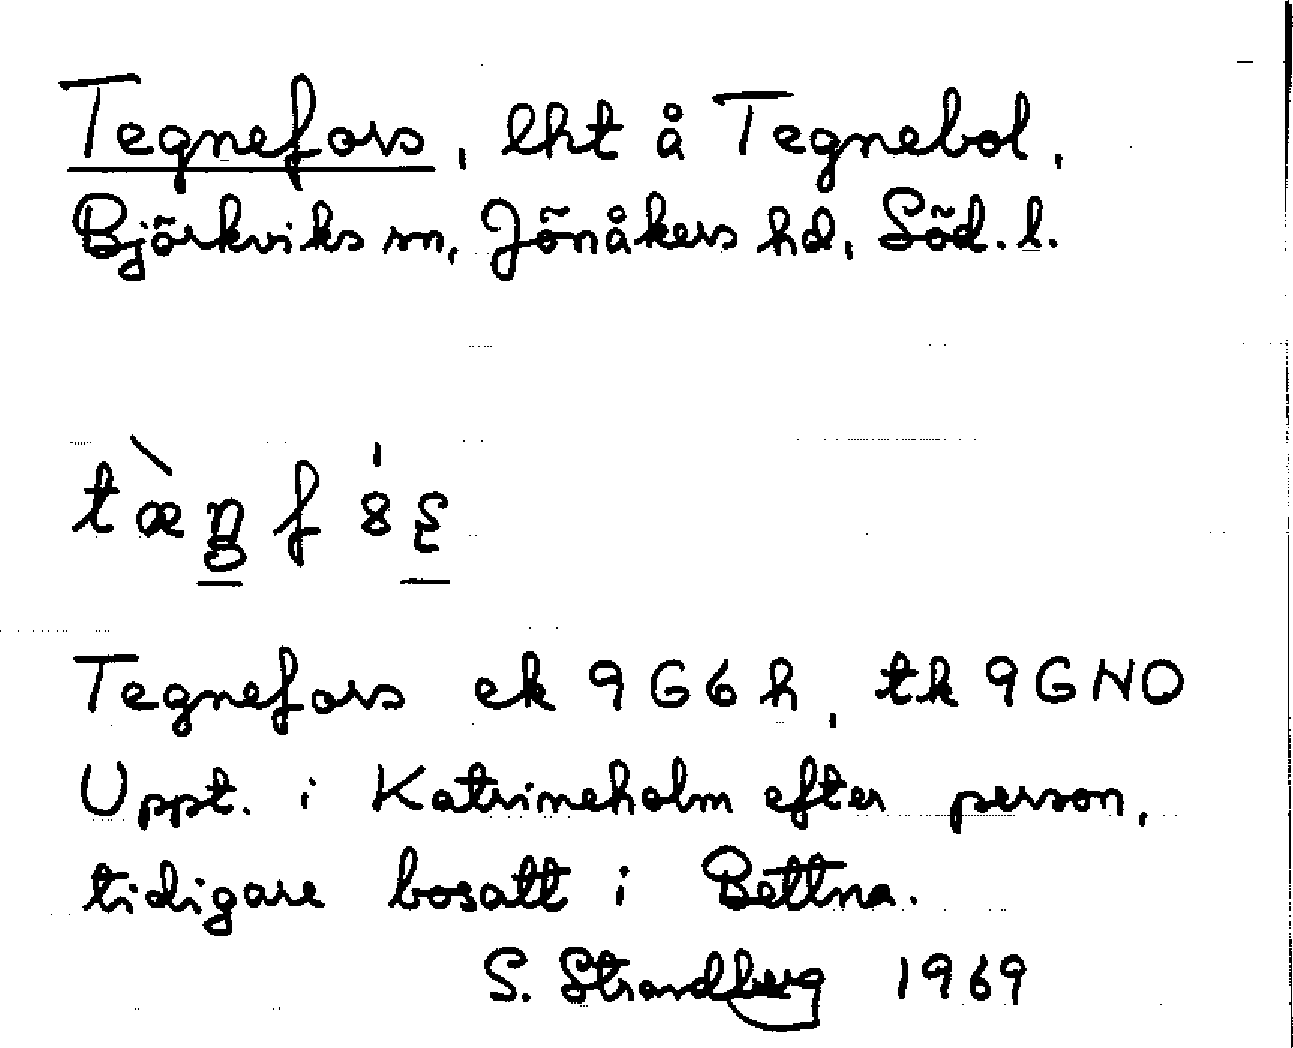 Tegnefors, lht å Tegnebol,
Björkviks sn, Jönåkers hd, Söd. l.
Tegnefors ek 9G6h, tk 9GNO
Uppt. i Katrineholm efter person,
tidigare bosatt i Bettna.
S. Strandberg 1969